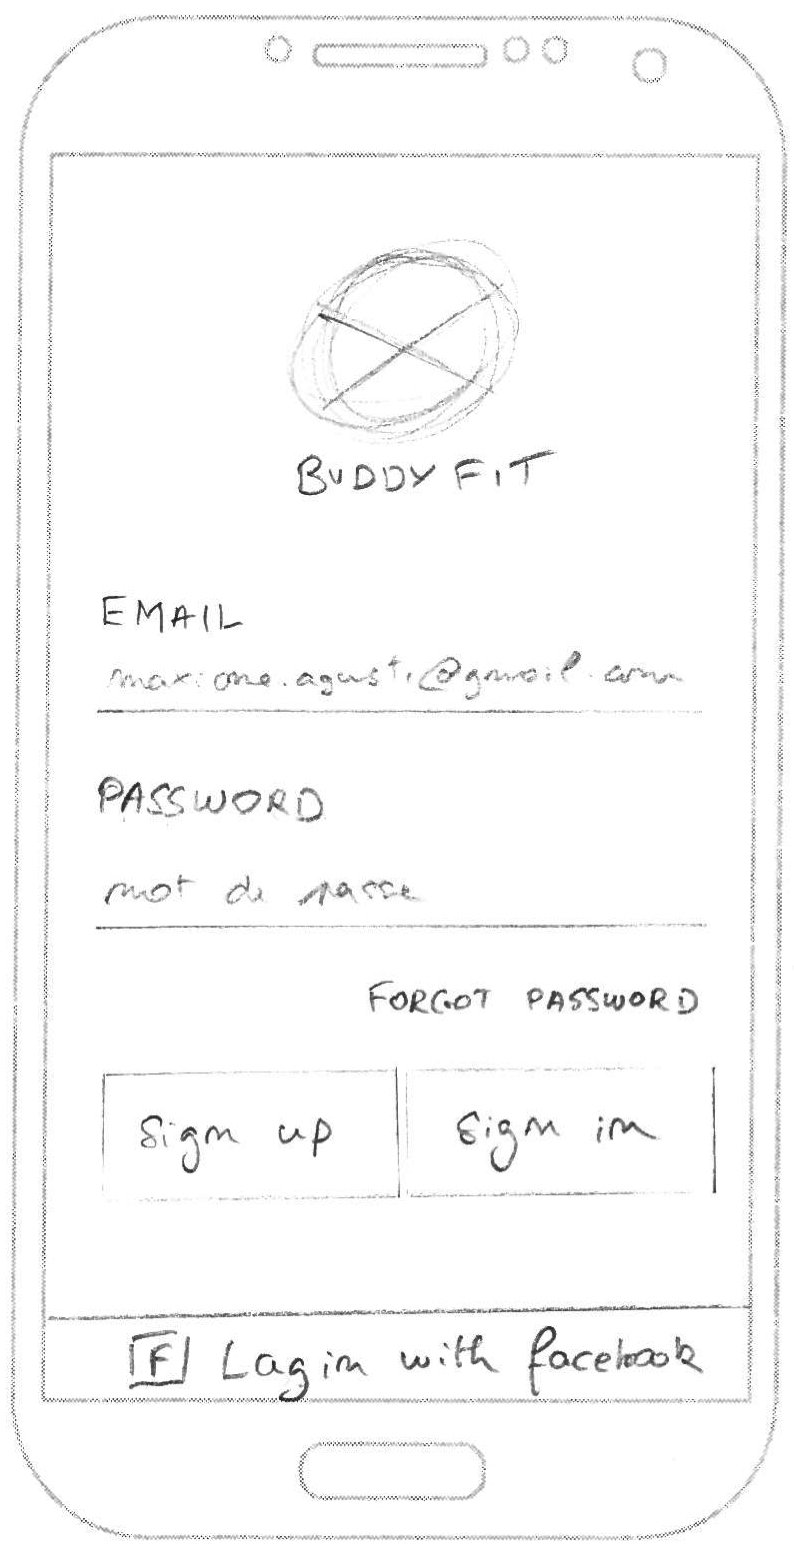 BUDDY FIT
EMAIL
maxime.agusti@gmail.com
PASSWORD
mot de passe
FORGOT PASSWORD
Sign up Sign in
F Login with facebook